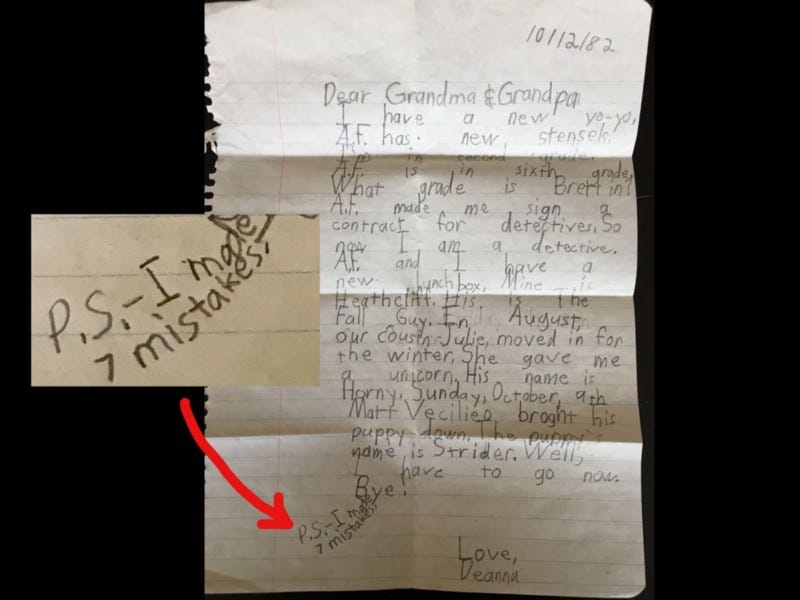 10/12/82
Dear Grandma & Grandpa
I have a new yo-yo.
A.F. has new stensels.
I'm in second grade.
A.F. is in sixth grade.
What grade is Brett in?
A.F. made me sign a
contract for detectives. So
now I am a detective.
A.F. and I have a
new lunchbox. Mine is
Heathcliff. His is The
Fall Guy. En August,
our Julie, moved in for
the winter. She gave me
a unicorn. His name is
Horny. Sunday, October, 9th
Matt Vecilieo broght his
puppy down. The puppy's
name is Strider. Well,
I have to go now.
Bye!
P.S.-I made
7 mistakes!
Love,
Deanna
P.S.-I made
7 mistakes!